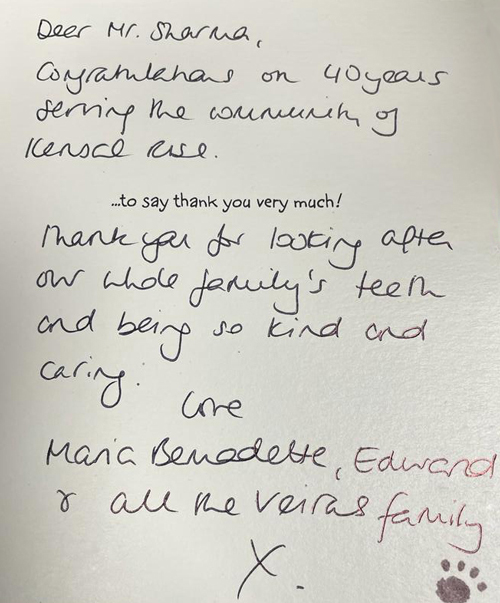 Deer Mr. Sharma,
Congratulations on 40 years
serving the community of
Kensal Rise.
...to say thank you very much!
Thank you for looking after
our whole family's teeth
and being so kind and
caring.
Love
Maria Bernadette, Edward
& all the Veiras family
X.